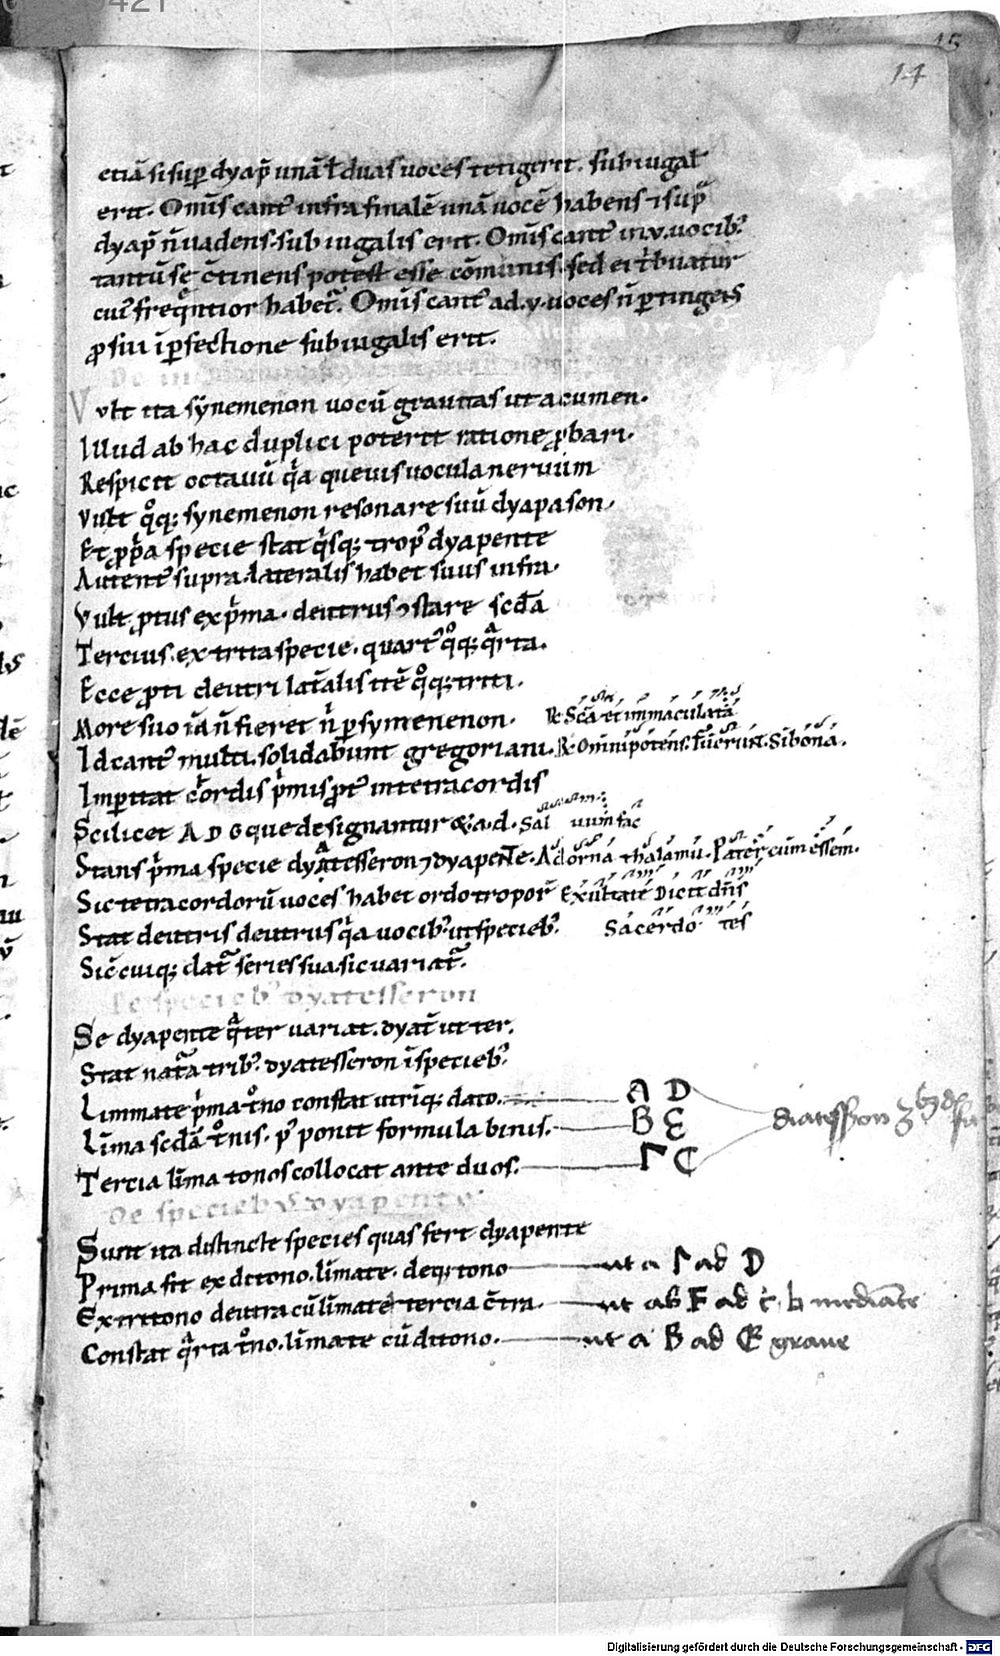 15
14
etiā si sup dyap̄ unā ł duas voces tetigerit. subiugal̄
erit. Om̄is cant᷒ infra finalē unā vocē habens ⁊ sup̄
dyap̄ n̄ vadens. sub iugalis erit. Om̄is cant᷒ in .v. vocib᷒
tantū se c̄tinens potest esse cōmunis. sed ei t̄buatur
cui᷒ freq̄ntior habet᷑. Om̄is cant᷒ ad .v. voces n̄ ptingens
ꝓ sui īpfectione subiugalis erit.
Vult ita synemenon vocū grauitas ut acumen.
Illud ab hac duplici poterit ratione ꝓbari.
Respicit octauū q̄a queuis vocula neruum
Vult q̊q; synemenon resonare suū dyapason.
Et ꝓp̄a specie stat q̄sq; trop᷒ dyapente
Autent᷒ supra. lateralis habet suus infra.
Vult ꝓtus ex p̄ma. deutrus ꝯstare sc̄da
Tercius. ex trita specie. quart᷒ q̊q; q̄rta.
Ecce ꝓti deutri lat̄alis itē q̊q; triti.
More suo iā n̄ fieret n̄ p synemenon. R. Sc̄a et immaculata
Id cant᷒ multi. solidabunt gregoriani. R. Omnipotens. fuerunt. Si bona.
Impitat c̄ordis p̄mis ꝓt᷒ in tetracordis
Scilicet A D G que designantur & a. d. Sal uum fac
Stans p̄ma specie dyatesseron ⁊ dyapente. Adorna thalamū. Pater cum essem.
Sic tetracordorū voces habet ordo tropor̄ Exultate Dicit dn̄s
Stat deutris deutrus q̄a vocib᷒ ut specieb᷒. Sacerdo tes
Sic cuiq; dat᷑ series sua. sic variat᷑.
De specieb᷒ dyatesseron
Se dyapente q̄ter variat. dyat̄ ut ter.
Stat nat᷑a trib᷒. dyatesseron ī specieb᷒.
Limmate p̄ma t̊no constat utriq; dato. A D
Līma sc̄dā t̊nis. p᷒ ponit formula binis. B E diatesseron
Tercia līma tonos collocat ante duos. Γ C
De specieb᷒ dyapente
Sunt ita distincte species quas fert dyapente
Prima fit ex ditono. līmate. deq; tono ut a Γ ad D
Ex tritono deutra cū līmate tercia c̄tra. ut ab F ad c. ♮ mediāte
Constat q̄rta t̊no. līmate cū ditono. ut a B ad E graue
Digitalisierung gefördert durch die Deutsche Forschungsgemeinschaft - DFG